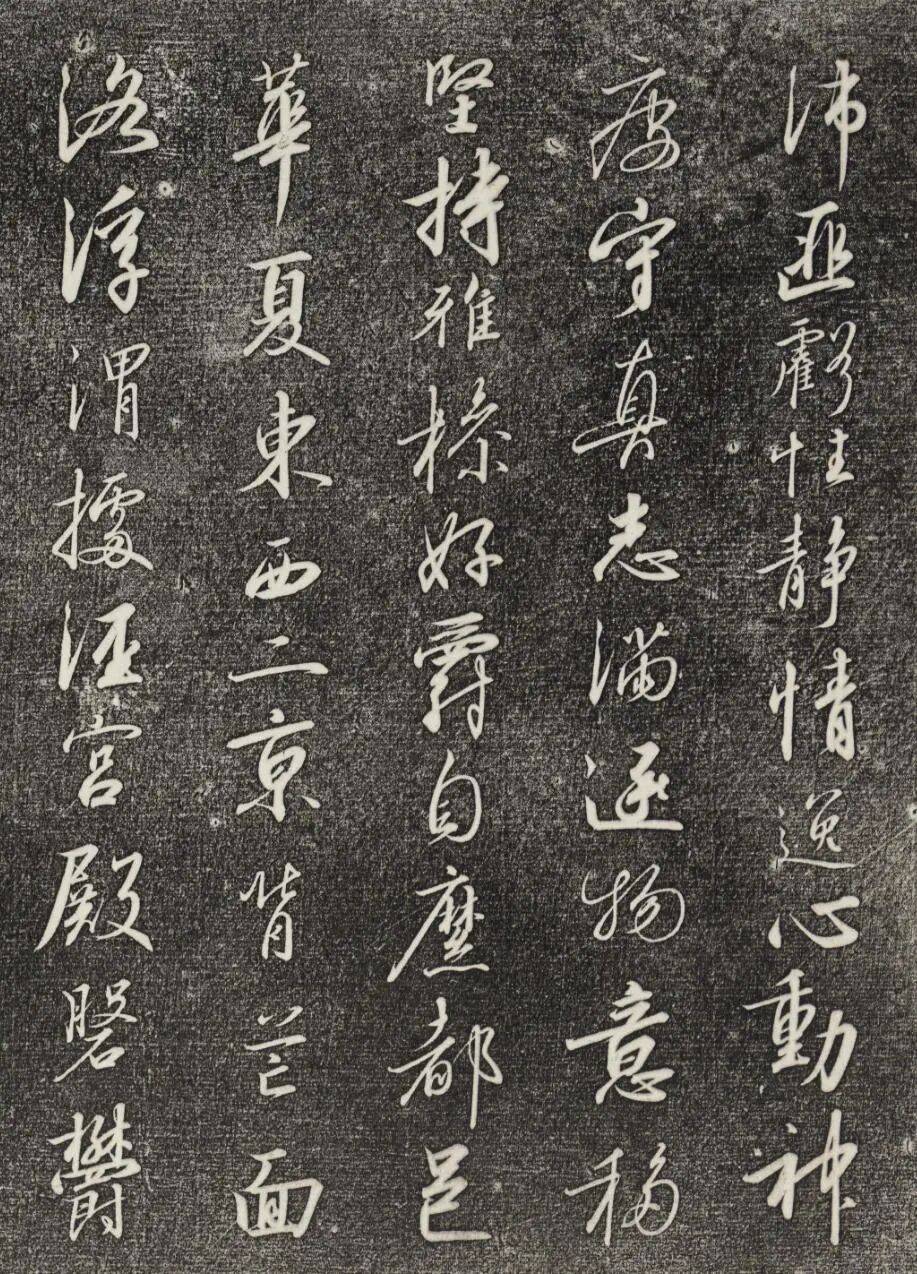 沛匪虧性静情逸心動神
疲守真志滿逐物意移
堅持雅操好爵自縻都邑
華夏東西二京背芒面
洛浮渭據涇宮殿磐欝